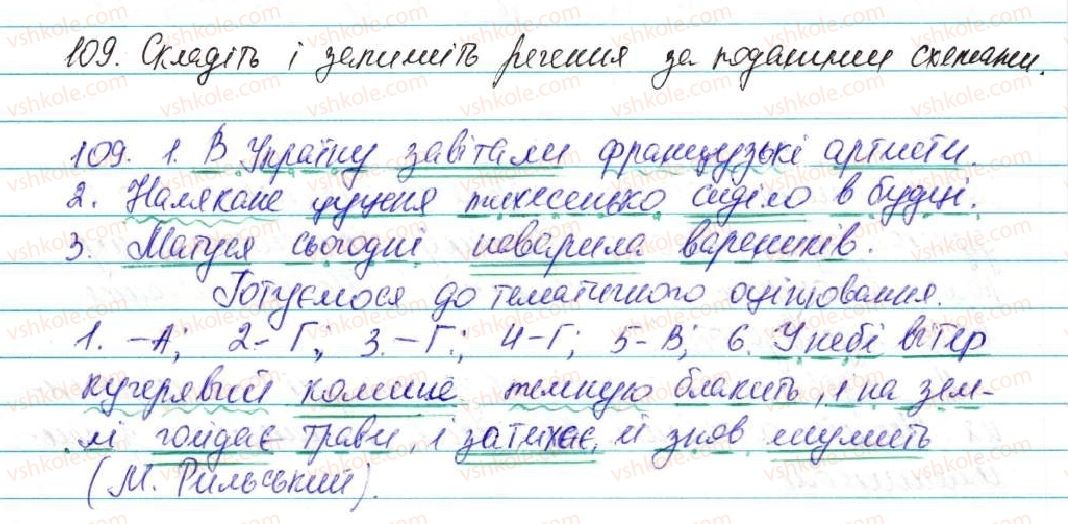 109. Складіть і запишіть речення за поданими схемами.
109. 1. В Україну завітали французькі артисти.
2. Налякане цуценя тихесенько сиділо в будці.
3. Матуся сьогодні наварила вареників.
Готуємося до тематичного оцінювання.
1. – А; 2 - Г; 3. – Г; 4 - Г; 5 - В; 6. У небі вітер
кучерявий колише темную блакить, і на зем-
лі гойдає трави, і затихає, й знов шумить
(М. Рильський).